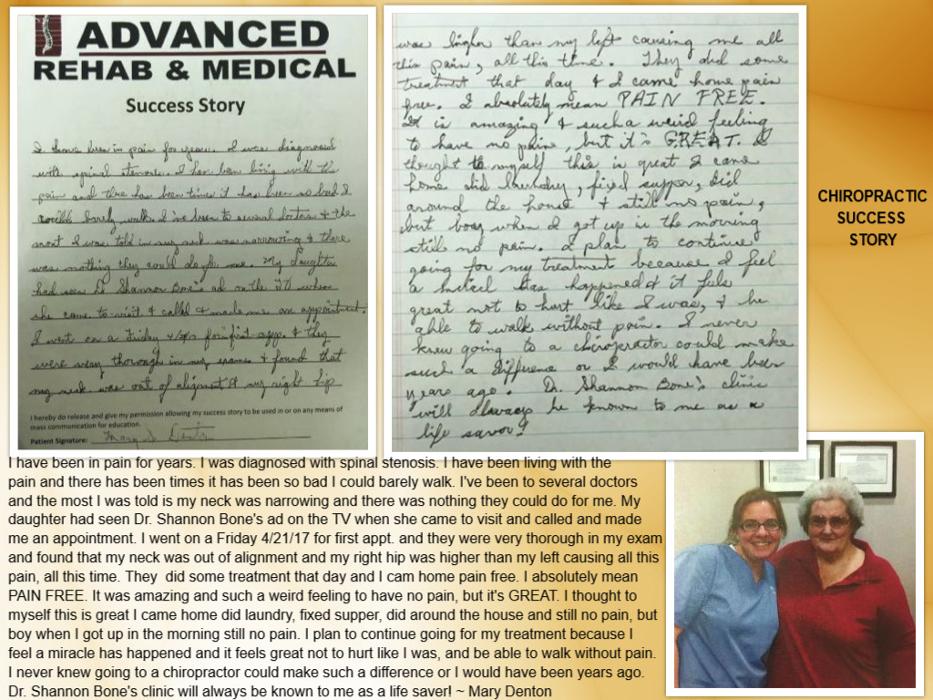 ADVANCED
REHAB & MEDICAL
Success Story
I have been in pain for years. I was diagnosed
with spinal stenosis. I have been living with the
pain and there has been times it has been so bad I
could barely walk. I've been to several doctors & the
most I was told is my neck was narrowing & there
was nothing they could do for me. My daughter
had seen Dr Shannon Bone's ad on the TV when
she came to visit & called & made me an appointment.
I went on a Friday for first appt. & they
were very thorough in my exam & found that
my neck was out of alignment & my right hip
I hereby do release and give my permission allowing my success story to be used in or on any means of
mass communication for education.
Patient Signature:
was higher than my left causing me all
this pain, all this time. They did some
treatment that day & I came home pain
free. I absolutely mean PAIN FREE.
It is amazing & such a weird feeling
to have no pain, but it's GREAT. I
thought to myself this is great I came
home did laundry, fixed supper, did
around the house & still no pain,
but boy when I got up in the morning
still no pain. I plan to continue
going for my treatment because I feel
a miracle has happened & it feels
great not to hurt like I was, & be
able to walk without pain. I never
knew going to a chiropractor could make
such a difference or I would have been
years ago. Dr. Shannon Bone's clinic
will always be known to me as a
life savor!
CHIROPRACTIC
SUCCESS
STORY
I have been in pain for years. I was diagnosed with spinal stenosis. I have been living with the
pain and there has been times it has been so bad I could barely walk. I've been to several doctors
and the most I was told is my neck was narrowing and there was nothing they could do for me. My
daughter had seen Dr. Shannon Bone's ad on the TV when she came to visit and called and made
me an appointment. I went on a Friday 4/21/17 for first appt. and they were very thorough in my exam
and found that my neck was out of alignment and my right hip was higher than my left causing all this
pain, all this time. They did some treatment that day and I cam home pain free. I absolutely mean
PAIN FREE. It was amazing and such a weird feeling to have no pain, but it's GREAT. I thought to
myself this is great I came home did laundry, fixed supper, did around the house and still no pain, but
boy when I got up in the morning still no pain. I plan to continue going for my treatment because I
feel a miracle has happened and it feels great not to hurt like I was, and be able to walk without pain.
I never knew going to a chiropractor could make such a difference or I would have been years ago.
Dr. Shannon Bone's clinic will always be known to me as a life saver! ~ Mary Denton